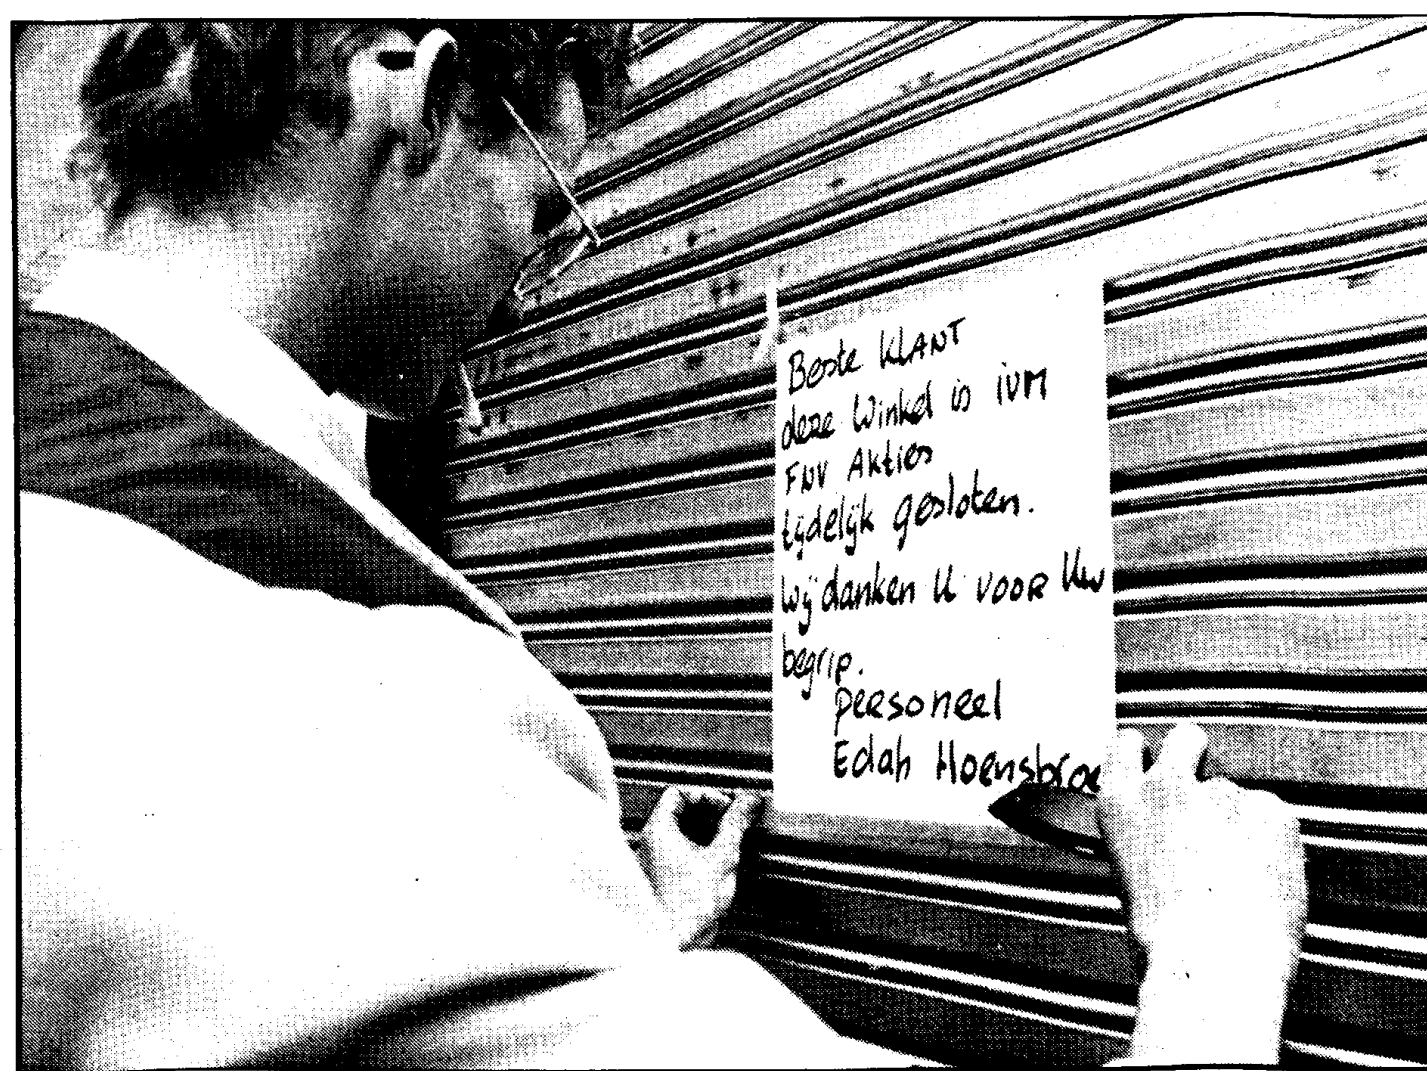 Beste KLANT
deze Winkel is ivm
FNV Akties
tijdelijk gesloten.
Wij danken U voor Uw
begrip.
personeel
Edah Hoensbroe